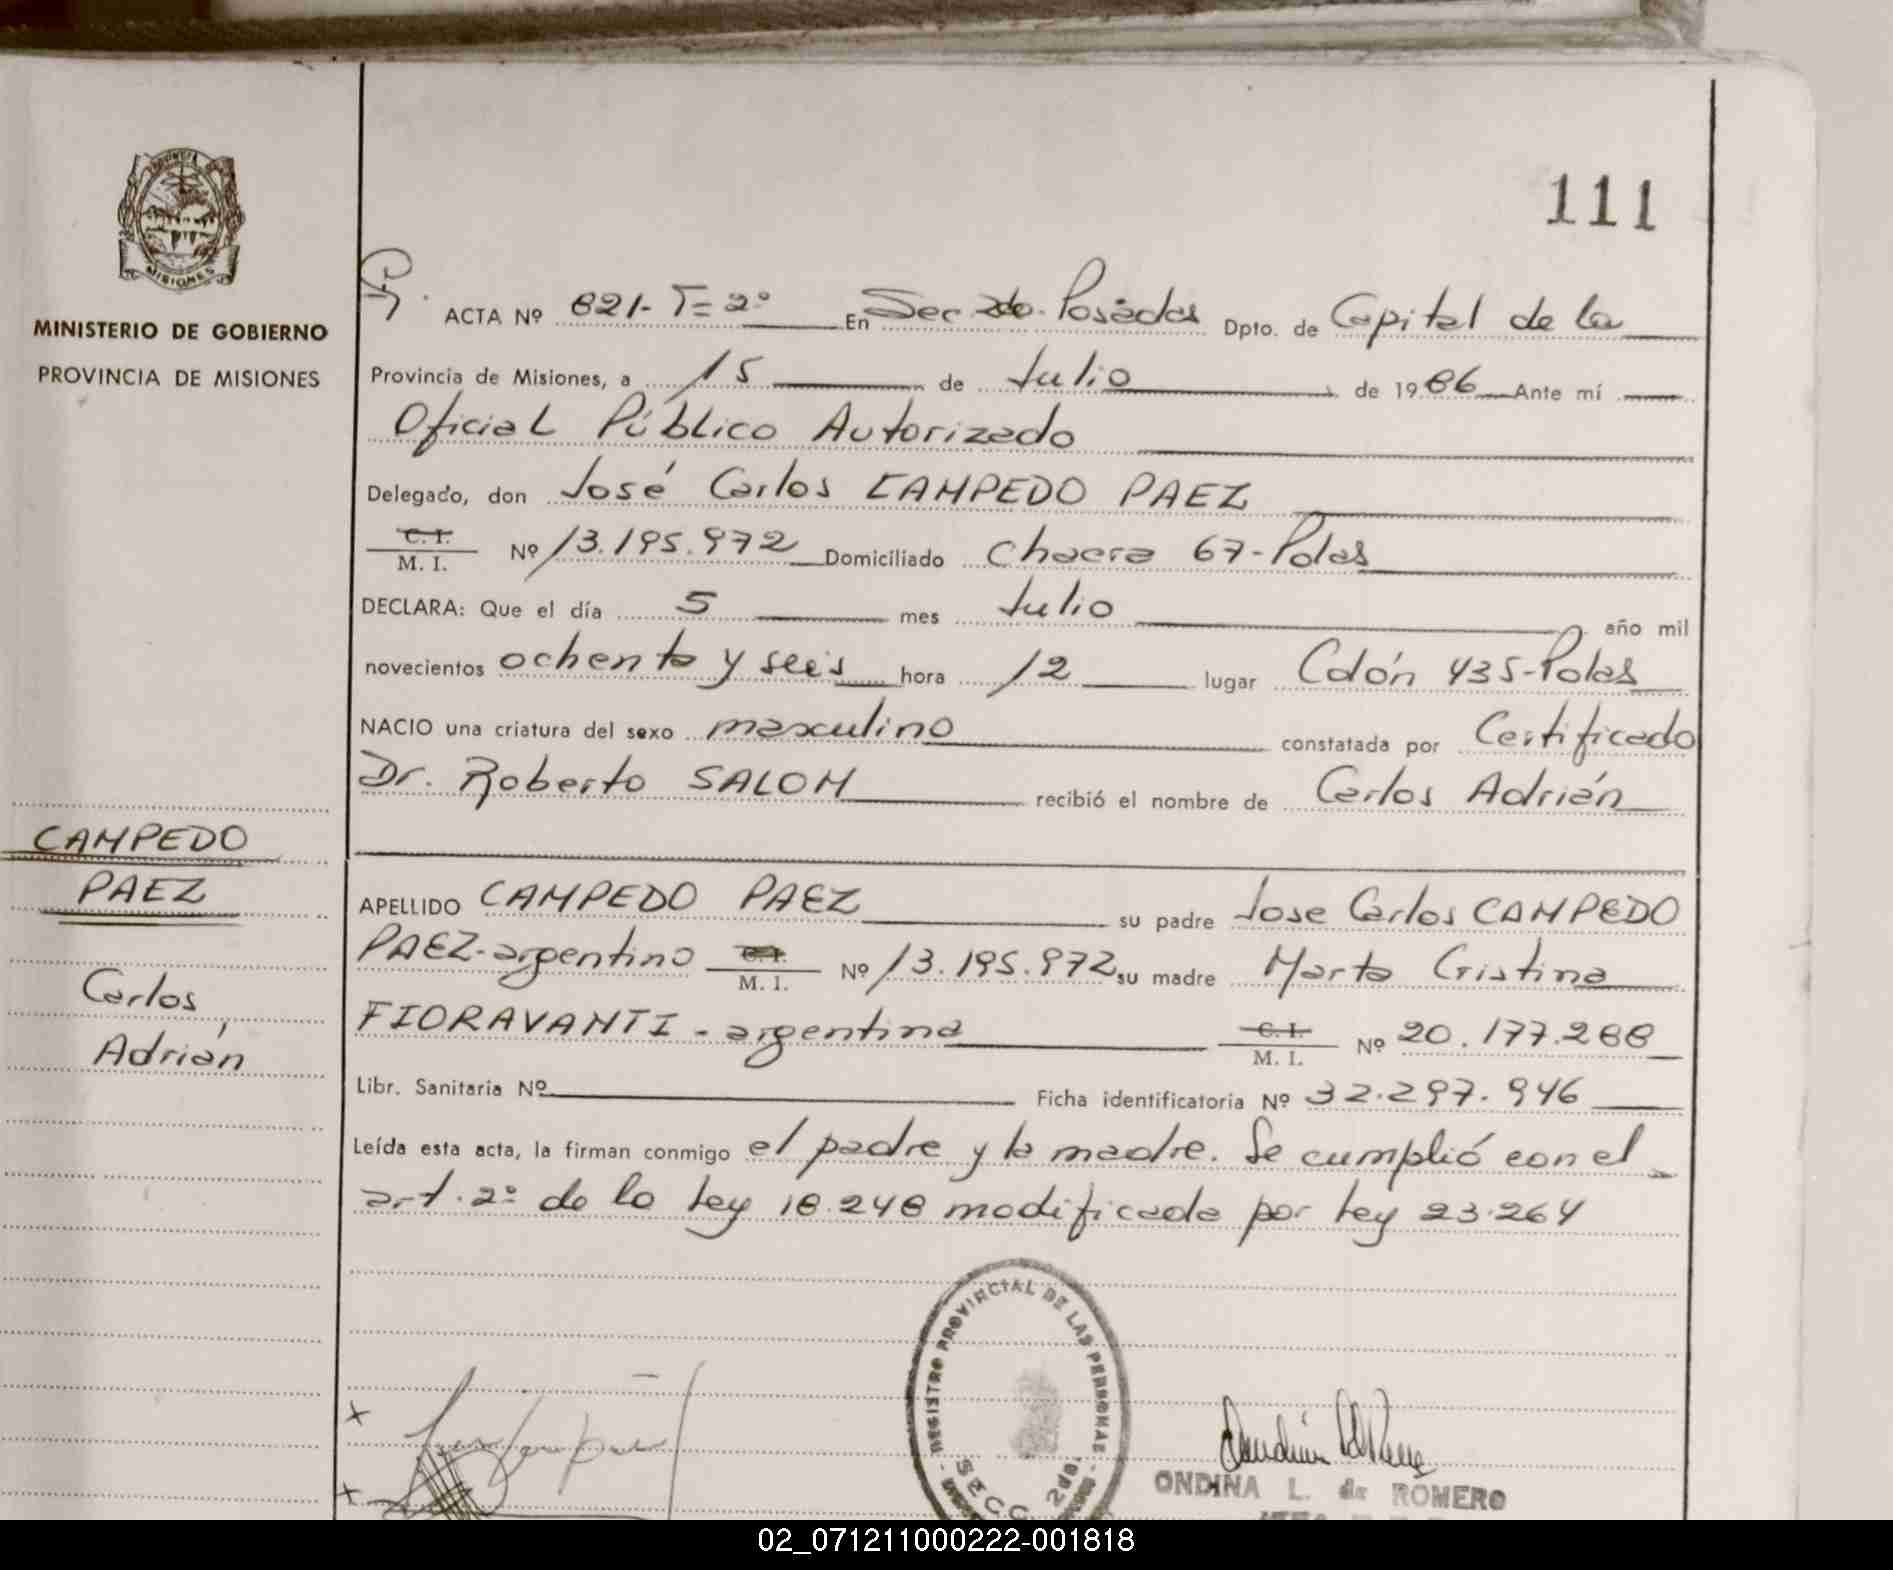 111
PROVINCIA DE
MISIONES
MINISTERIO DE GOBIERNO
PROVINCIA DE MISIONES
ACTA Nº 821- T= 2º En Sec 2do. Posadas Dpto. de Capital de la
Provincia de Misiones, a 15 de Julio de 1986 Ante mí
Oficial Público Autorizado
Delegado, don José Carlos CAMPEDO PAEZ
C. I.
M. I. Nº 13.195.972 Domiciliado Chacra 67-Pdas
DECLARA: Que el día 5 mes Julio año mil
novecientos ochenta y seis hora 12 lugar Colón 435-Pdas
NACIO una criatura del sexo masculino constatada por Certificado
Dr. Roberto SALOM recibió el nombre de Carlos Adrián
CAMPEDO
PAEZ
Carlos
Adrián
APELLIDO CAMPEDO PAEZ su padre Jose Carlos CAMPEDO
PAEZ-argentino C. I.
M. I. Nº 13.195.972 su madre Marta Cristina
FIORAVANTI - argentina C. I.
M. I. Nº 20.177.288
Libr. Sanitaria Nº Ficha identificatoria Nº 32.297.946
Leída esta acta, la firman conmigo el padre y la madre. Se cumplió con el
art. 2º de la Ley 18.248 modificada por Ley 23.264
REGISTRO PROVINCIAL DE LAS PERSONAS
SECC. 2da.
ONDINA L. de ROMERO
02_071211000222-001818